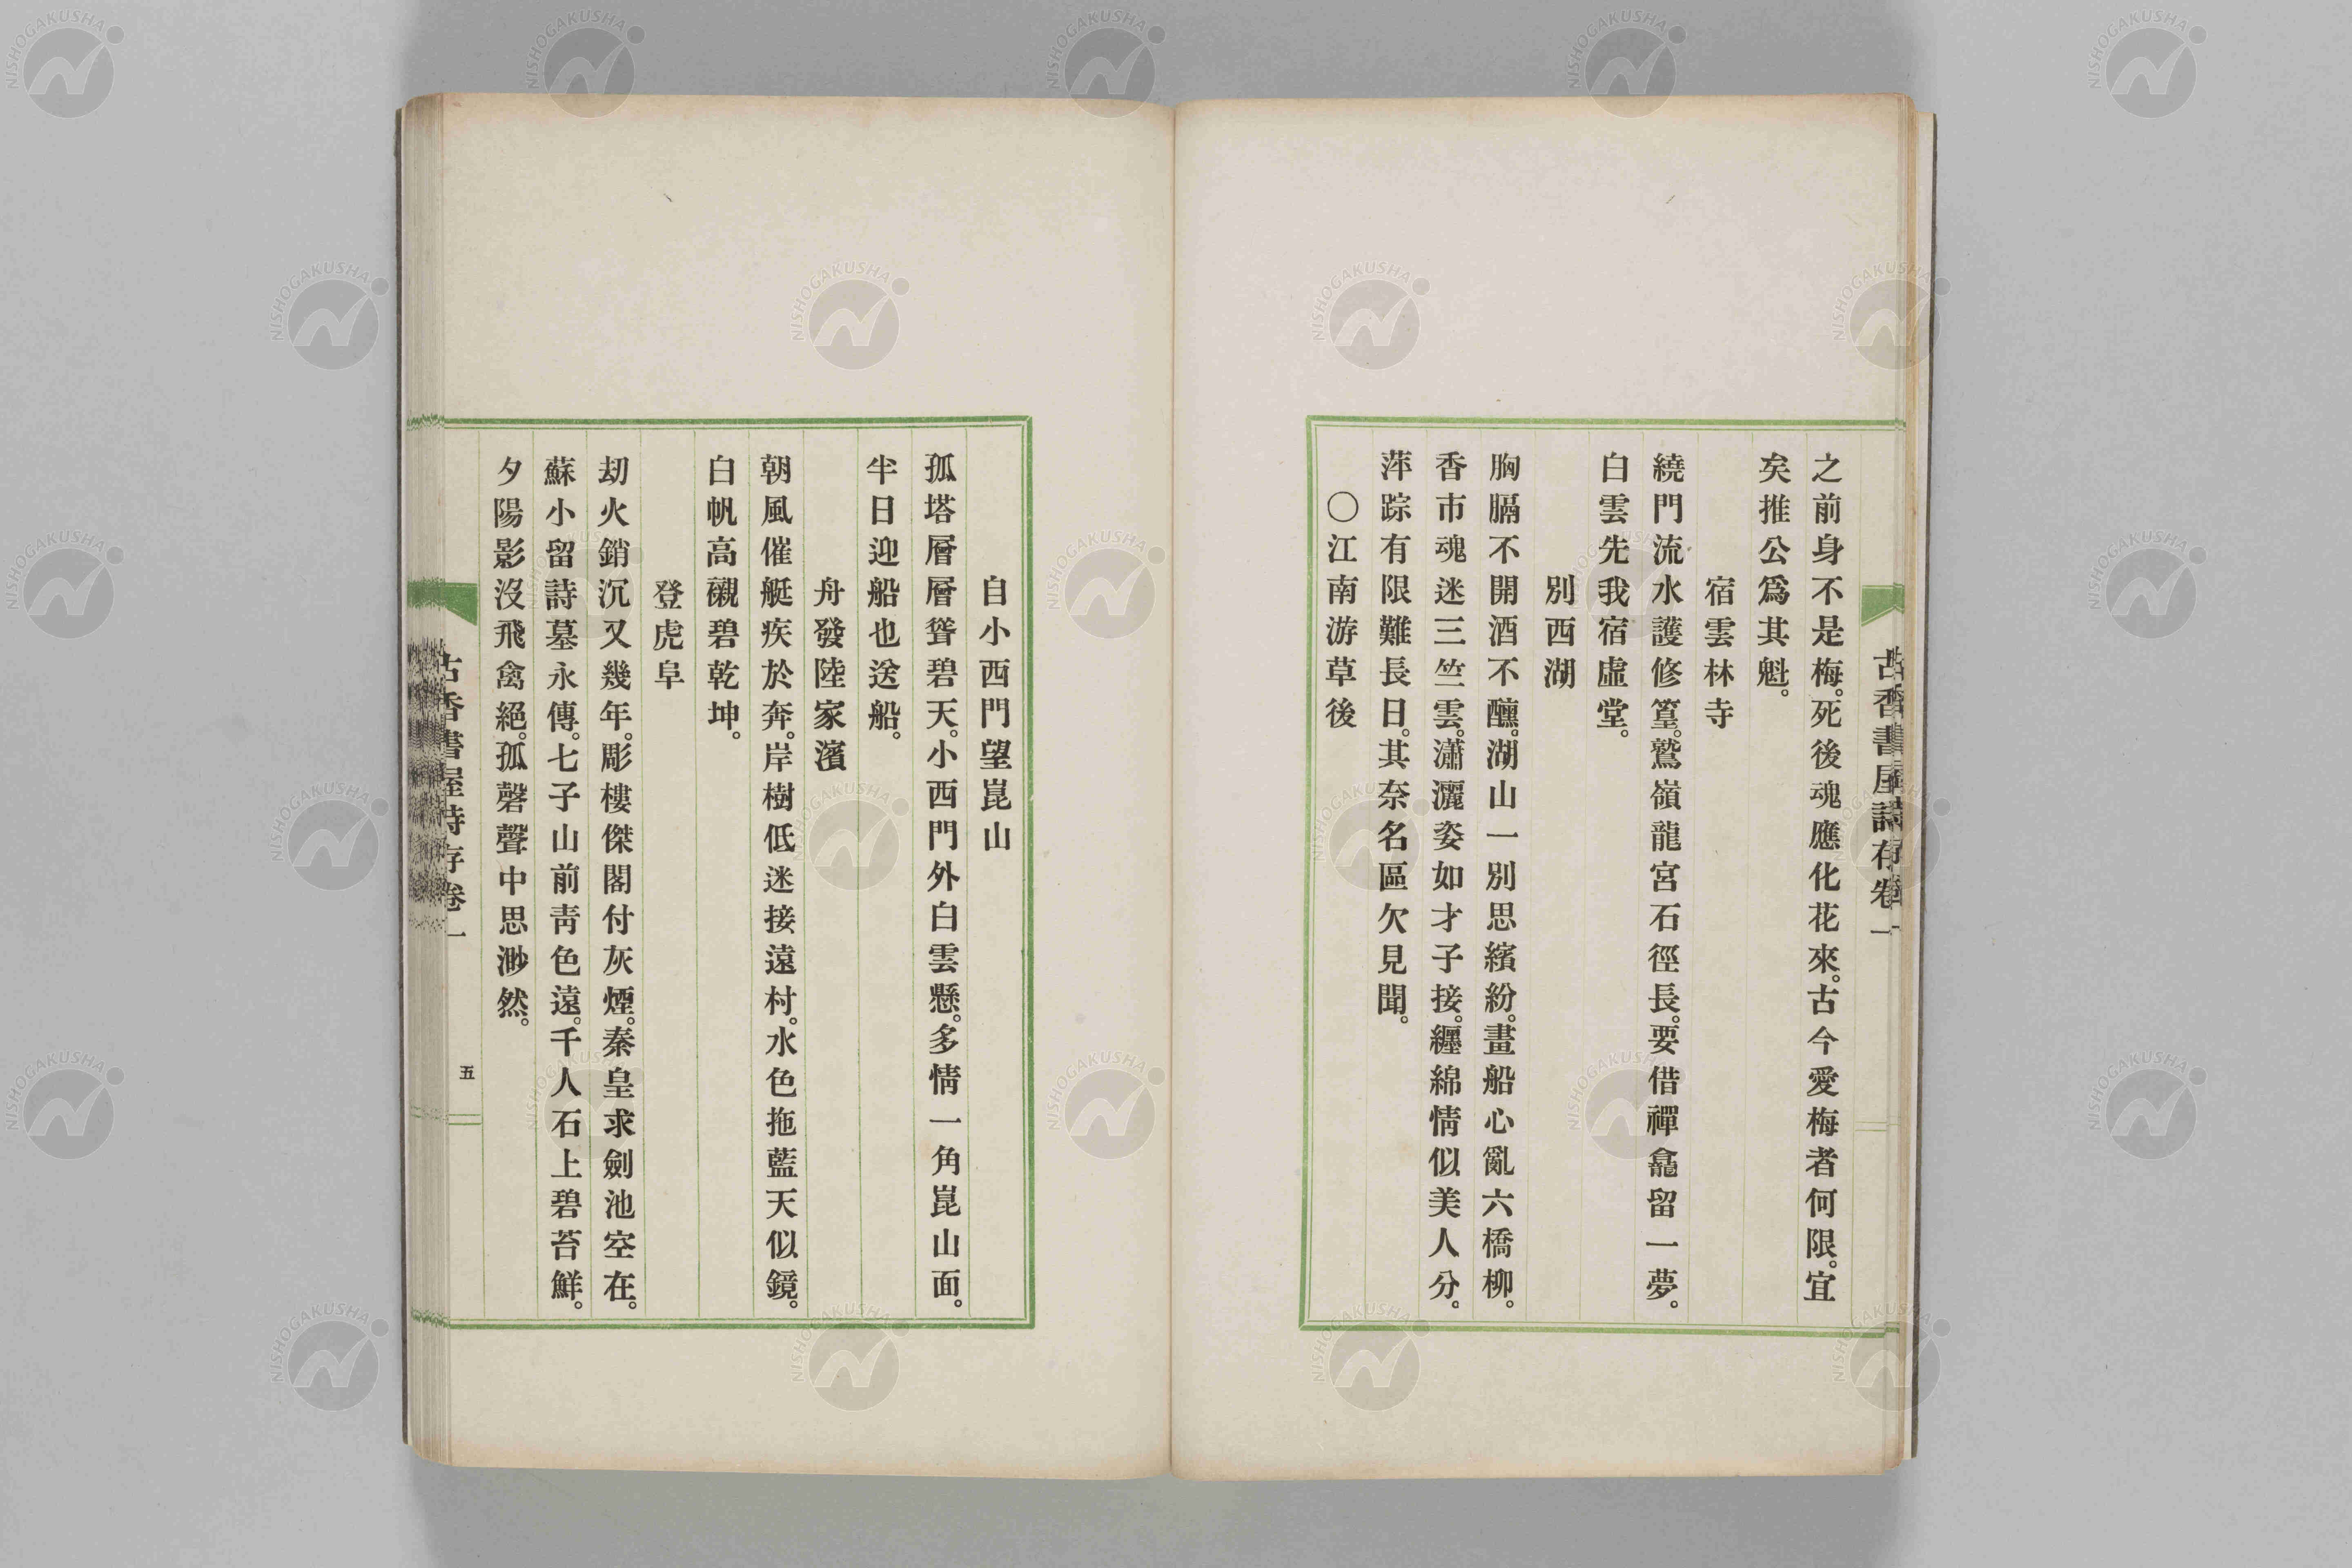 古香書屋詩存卷一
之前身不是梅。死後魂應化花來。古今愛梅者何限。宜
矣推公爲其魁。
宿雲林寺
繞門流水護修篁。鷲嶺龍宮石徑長。要借禪龕留一夢。
白雲先我宿虛堂。
別西湖
胸膈不開酒不醺。湖山一別思繽紛。畫船心亂六橋柳。
香市魂迷三竺雲。瀟灑姿如才子接。纏綿情似美人分。
萍踪有限難長日。其奈名區欠見聞。
〇江南游草後
自小西門望崑山
孤塔層層聳碧天。小西門外白雲懸。多情一角崑山面。
半日迎船也送船。
舟發陸家濱
朝風催艇疾於奔。岸樹低迷接遠村。水色拖藍天似鏡。
白帆高襯碧乾坤。
登虎阜
刧火銷沉又幾年。彫樓傑閣付灰煙。秦皇求劍池空在。
蘇小留詩墓永傳。七子山前靑色遠。千人石上碧苔鮮。
夕陽影沒飛禽絕。孤磬聲中思渺然。
古香書屋詩存卷一
五
NISHOGAKUSHA